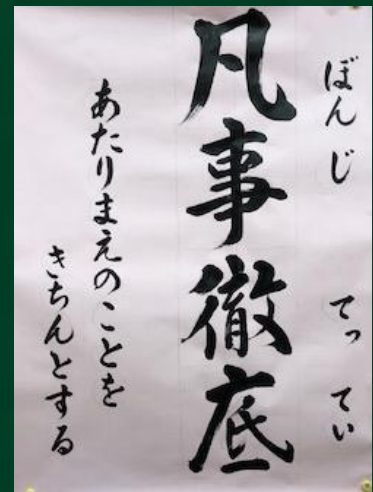 ぼんじ てってい
凡事徹底
あたりまえのことを
きちんとする